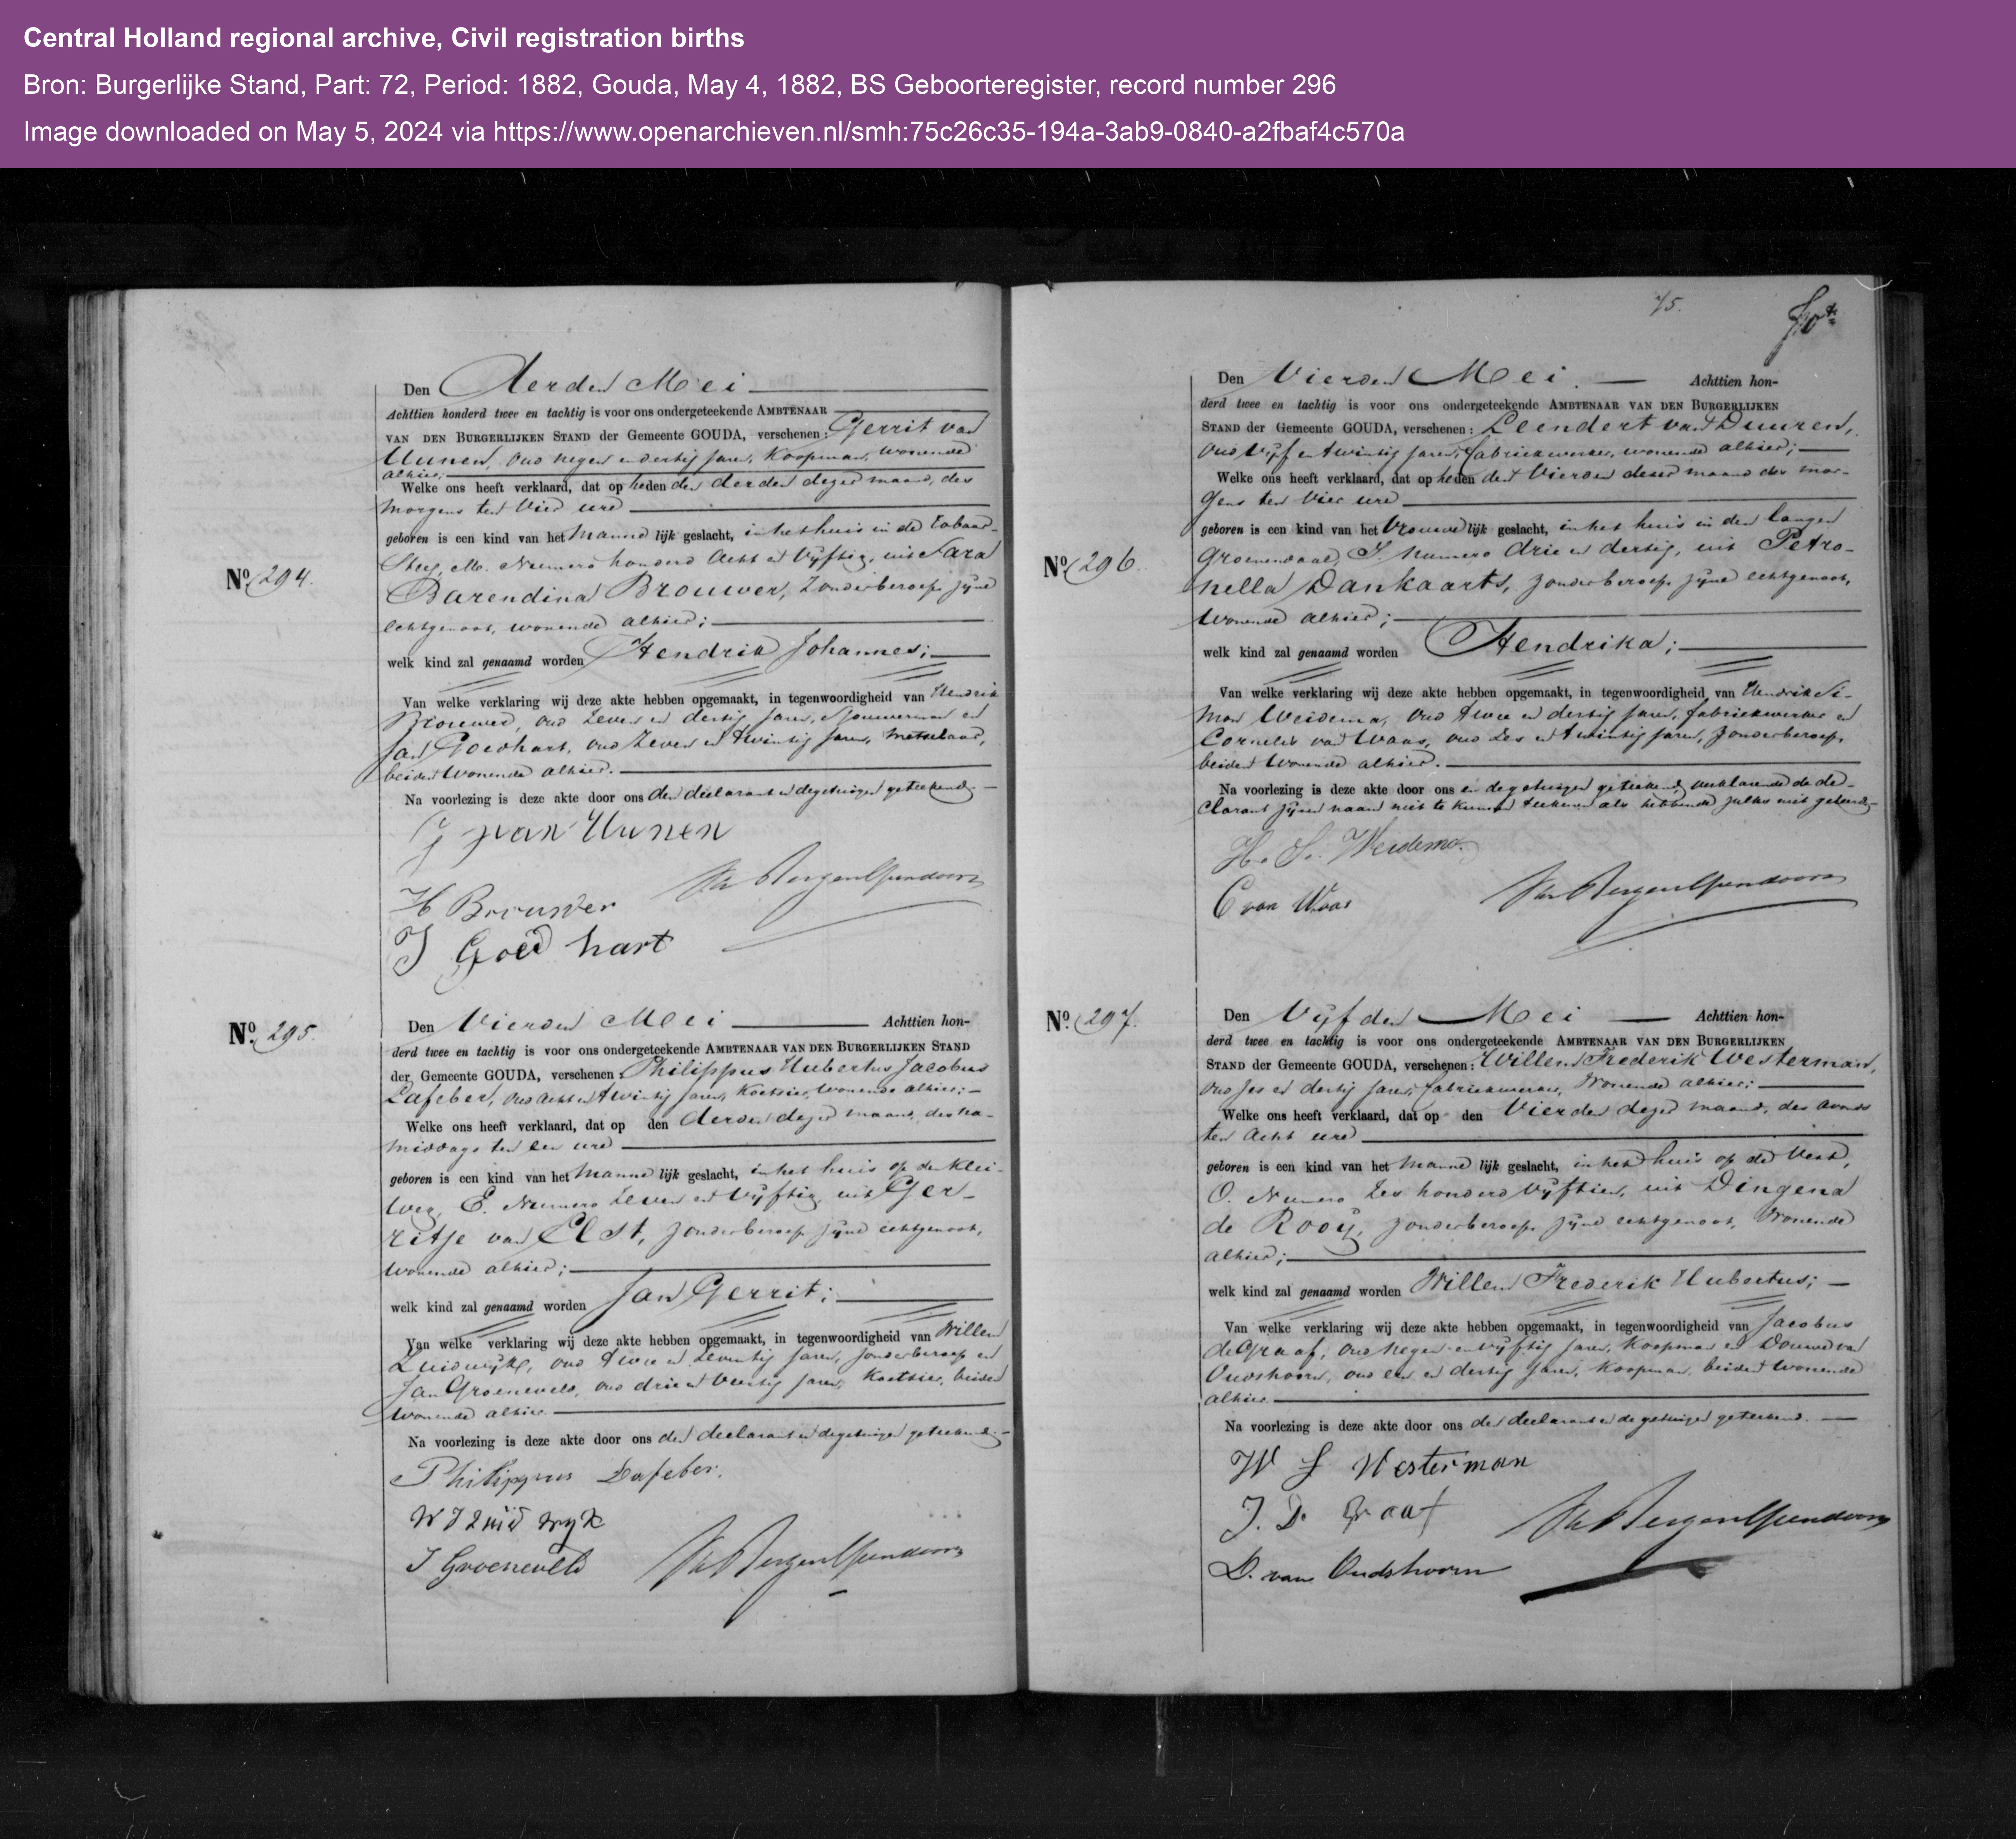 Central Holland regional archive, Civil registration births
Bron: Burgerlijke Stand, Part: 72, Period: 1882, Gouda, May 4, 1882, BS Geboorteregister, record number 296
Image downloaded on May 5, 2024 via https://www.openarchieven.nl/smh:75c26c35-194a-3ab9-0840-a2fbaf4c570a
No. 294.
Den derden Mei
Achttien honderd twee en tachtig is voor ons ondergeteekende AMBTENAAR
VAN DEN BURGERLIJKEN STAND der Gemeente GOUDA, verschenen: Gerrit van
Uunen, oud negen en dertig jaren, Koopman, wonende
alhier;
Welke ons heeft verklaard, dat op heden den derden dezer maand, des
morgens ten vier ure
geboren is een kind van het manne lijk geslacht, in het huis in de Tabaar-
steeg, M. Numero honderd acht en vijftig, uit Sara
Barendina Brouwer, zonder beroep, zijne
echtgenoot, wonende alhier;
welk kind zal genaamd worden Hendrik Johannes;
Van welke verklaring wij deze akte hebben opgemaakt, in tegenwoordigheid van Hendrik
Brouwer, oud zeven en dertig jaren, Sjouwerman en
Jan Goedhart, oud zeven en twintig jaren, metselaar,
beiden wonende alhier.
Na voorlezing is deze akte door ons den declarant en de getuigen geteekend.
G van Uunen
H Brouwer
J Goedhart
No. 295.
Den Vierden Mei Achttien hon-
derd twee en tachtig is voor ons ondergeteekende AMBTENAAR VAN DEN BURGERLIJKEN STAND
der Gemeente GOUDA, verschenen: Philippus Hubertus Jacobus
Lafeber, oud acht en twintig jaren, Koetsier, wonende alhier;
Welke ons heeft verklaard, dat op den derden dezer maand, des na-
middags ten een ure
geboren is een kind van het manne lijk geslacht, in het huis op de Klei-
weg, E. Numero zeven en vijftig, uit Ger-
ritje van Elst, zonder beroep, zijne echtgenoot,
wonende alhier;
welk kind zal genaamd worden Jan Gerrit;
Van welke verklaring wij deze akte hebben opgemaakt, in tegenwoordigheid van Willem
Zuidwijk, oud twee en zeventig jaren, zonder beroep en
Jan Groeneveld, oud drie en veertig jaren, Koetsier, beiden
wonende alhier.
Na voorlezing is deze akte door ons den declarant en de getuigen geteekend.
Philippus Lafeber.
W Zuidwyk
J Groeneveld
75.
No. 296.
Den Vierden Mei. Achttien hon-
derd twee en tachtig is voor ons ondergeteekende AMBTENAAR VAN DEN BURGERLIJKEN
STAND der Gemeente GOUDA, verschenen: Leendert van Duuren,
oud vijf en twintig jaren, fabriekwerker, wonende alhier;
Welke ons heeft verklaard, dat op heden den Vierden dezer maand des mor-
gens ten vier ure
geboren is een kind van het vrouwe lijk geslacht, in het huis in den langen
Groenendaal, I. numero drie en dertig, uit Petro-
nella Dankaarts, zonder beroep, zijne echtgenoot,
wonende alhier;
welk kind zal genaamd worden Hendrika;
Van welke verklaring wij deze akte hebben opgemaakt, in tegenwoordigheid van Hendrik Si-
mon Weidema, oud twee en dertig jaren, fabriekwerker en
Cornelis van Waas, oud zes en twintig jaren, zonder beroep,
beiden wonende alhier.
Na voorlezing is deze akte door ons en de getuigen geteekend, verklarende de de-
clarant zijnen naam niet te kunnen teekenen als hebbende zulks niet geleerd.
H. S. Weidema.
C van Waas
No. 297.
Den Vijfden Mei Achttien hon-
derd twee en tachtig is voor ons ondergeteekende AMBTENAAR VAN DEN BURGERLIJKEN
STAND der Gemeente GOUDA, verschenen: Willem Frederik Westerman,
oud zes en dertig jaren, fabriekwerker, wonende alhier;
Welke ons heeft verklaard, dat op den Vierden dezer maand, des avonds
ten acht ure
geboren is een kind van het manne lijk geslacht, in het huis op de Vest,
O. Numero zes honderd vijftien, uit Dingena
de Rooy, zonder beroep, zijne echtgenoot, wonende
alhier;
welk kind zal genaamd worden Willem Frederik Hubertus;
Van welke verklaring wij deze akte hebben opgemaakt, in tegenwoordigheid van Jacobus
de Graaf, oud negen en vijftig jaren, Koopman en Douwe van
Oudshoorn, oud een en dertig jaren, Koopman, beiden wonende
alhier.
Na voorlezing is deze akte door ons den declarant en de getuigen geteekend.
W F Westerman
J. D. Graaf
D. van Oudshoorn